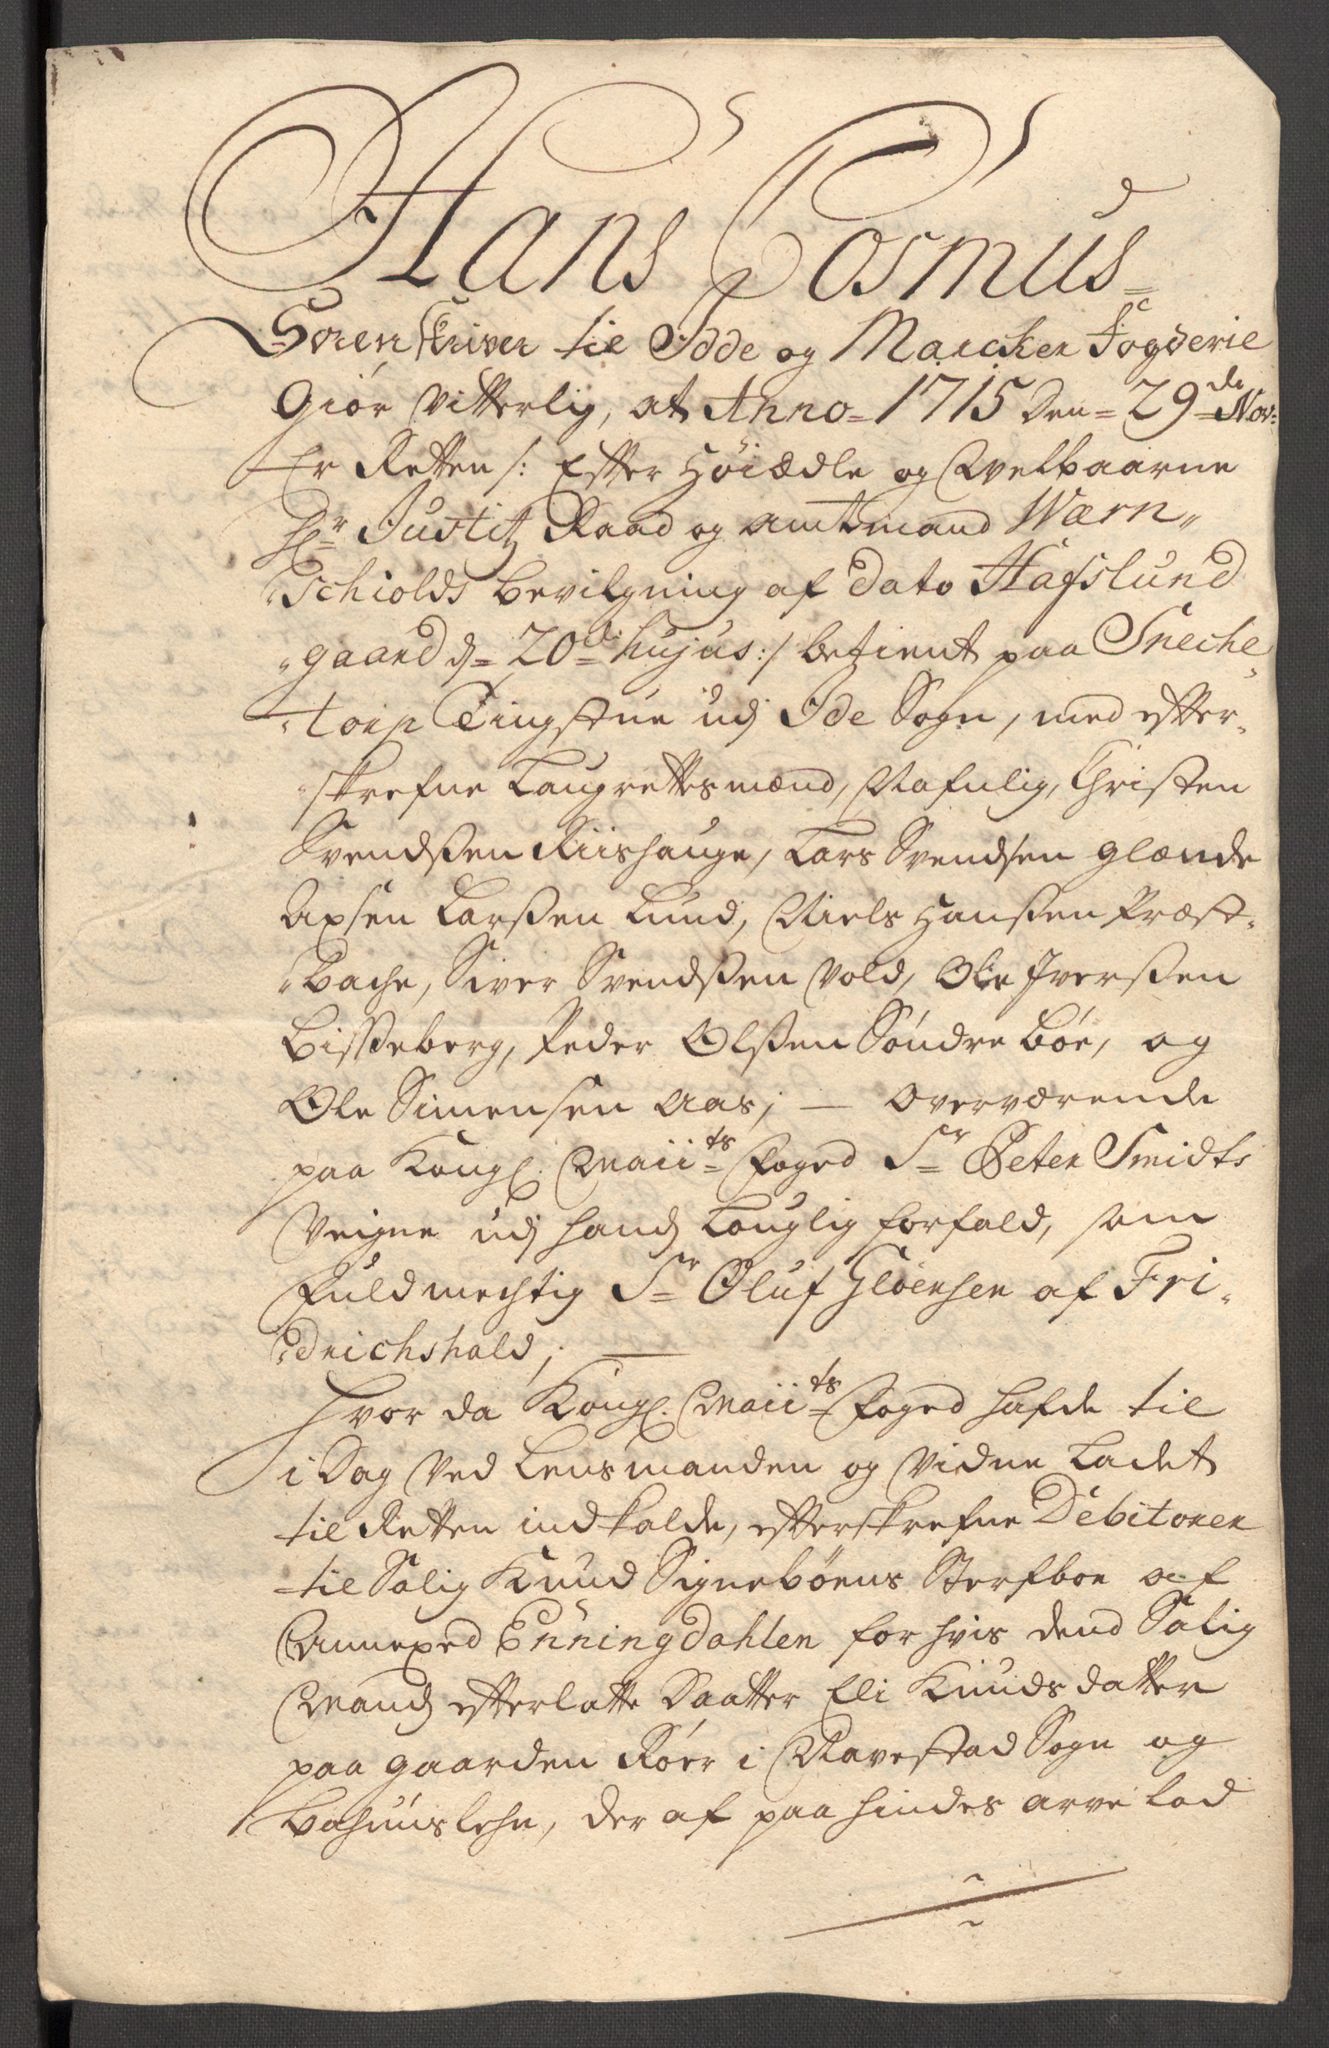 Hans Cosmus
Sorenskriver til Idde og Marcker Fogderie
Giør Vitterlig, at Anno 1715 den 29de Nov:
Er Retten /: Efter Høiædle og Welbaarne
Hr Justitz Raad og Amtmand Wærn-
schiolds bevilgning af dato Hafslund
gaard d= 20de hujus :/ betient paa Sneche-
torp Tingstue udj Ide Sogn, med efter-
skrefne Laugrettesmænd, Nafnlig, Christen
Svendßen Riishauge, Lars Svendsen Glænde
Axsen Larßen Lund, Niels Hanßen Præst-
bache, Siver Svendßen Vold, Ole Iverßen
Bißeberg, Peder Olßen Søndre Bøe, og
Ole Simensen Aas; — Overværende
paa Kongl. Maiits Foged Sr Peter Smidts
Veigne udj hands Louglig forfald, som
Fuldmechtig Sr Oluf Gloersen af Fri-
drichshald; —
Hvor da Kongl. Maiits Foged hafde til
i Dag Ved Lensmanden og Vidne Ladet
til Retten indkalde, efterskrefne Debitorer
til Salig Knud Signebøens Sterfboe af
Annexed Enningdahlen for hvis dend Salig
Mands efterlatte Daatter Eli Knudsdatter
paa gaarden Röer i Navestad Sogn og
Bahuuslehn, der af paa hindes arve lod